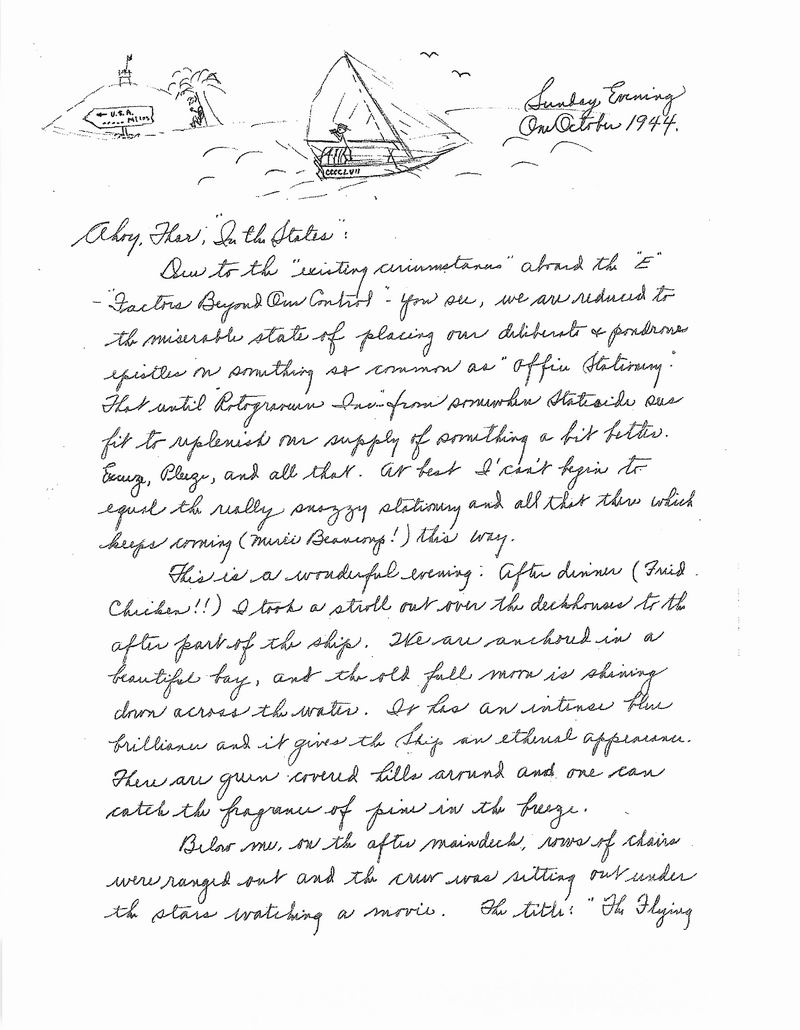 Sunday Evening
One October 1944.
← U.S.A.
..... MILES
CCCCLVII
Ahoy, Thar, "In the States":
Due to the "existing circumstances" aboard the "E"
- "Factors Beyond Our Control" - you see, we are reduced to
the miserable state of placing our deliberate & pondrous
epistles on something so common as "Office Stationery".
That until "Rotogravure Inc" from somewhere Stateside sees
fit to replenish our supply of something a bit better.
Exuze, Pleze, and all that. At best I can't begin to
equal the really snazzy stationery and all that there which
keeps coming (Mercí Beaucoup!) this way.
This is a wonderful evening. After dinner (Fried
Chicken!!) I took a stroll out over the deckhouses to the
after part of the ship. We are anchored in a
beautiful bay, and the old full moon is shining
down across the water. It has an intense blue
brilliance and it gives the Ship an ethereal appearance.
There are green covered hills around and one can
catch the fragrance of pine in the breeze.
Below me, on the after maindeck, rows of chairs
were ranged out and the crew was sitting out under
the stars watching a movie. The title: "The Flying